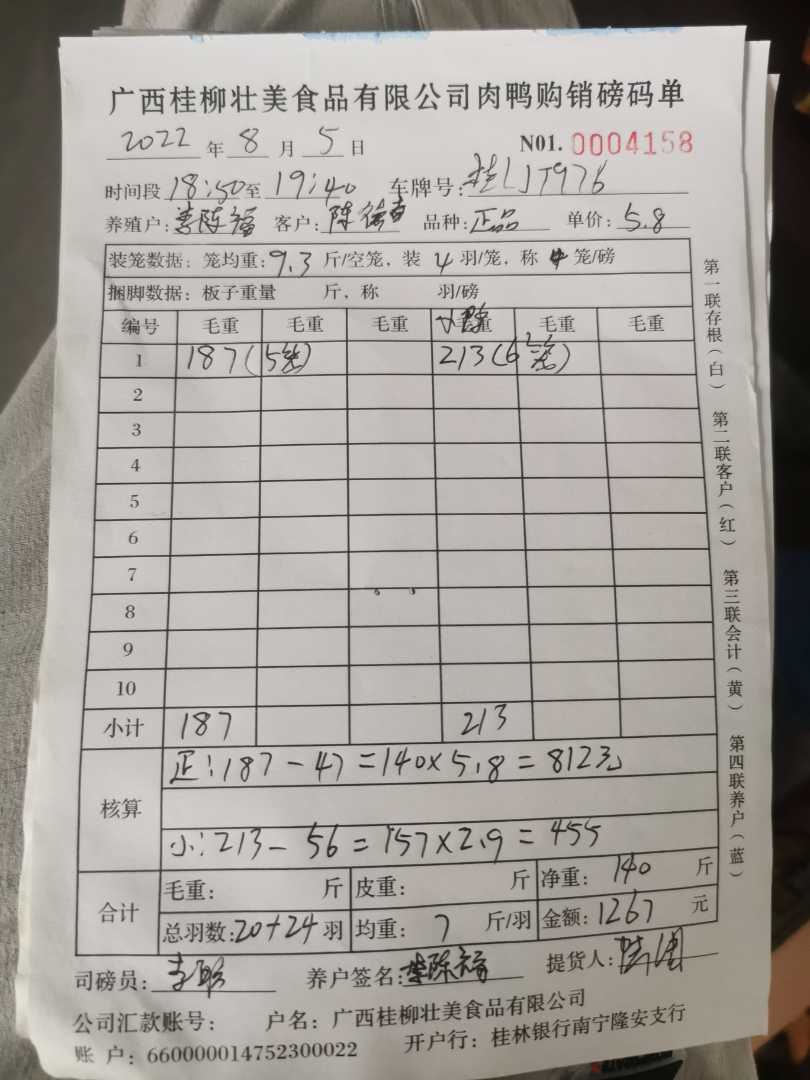 广西桂柳壮美食品有限公司肉鸭购销磅码单
2022 年 8 月 5 日 N01. 0004158
时间段 18:50至 19:40 车牌号: 桂LJT976
养殖户: 李陈福 客户: 陈 品种: 正品 单价: 5.8
装笼数据: 笼均重: 9.3 斤/空笼, 装 4 羽/笼, 称 笼/磅
捆脚数据: 板子重量 斤, 称 羽/磅
编号 毛重 毛重 毛重 毛重 毛重 毛重
1 187(5笼) 213(6笼)
2
3
4
5
6
7
8
9
10
小计 187 213
核算 正: 187 - 47 = 140 × 5.8 = 812元
小: 213 - 56 = 157 × 2.9 = 455
合计 毛重: 斤 皮重: 斤 净重: 140 斤
总羽数: 20+24 羽 均重: 7 斤/羽 金额: 1267 元
司磅员: 李 养户签名: 李陈福 提货人:
公司汇款账号: 户名: 广西桂柳壮美食品有限公司
账 户: 660000014752300022 开户行: 桂林银行南宁隆安支行
第一联存根(白) 第二联客户(红) 第三联会计(黄) 第四联养户(蓝)